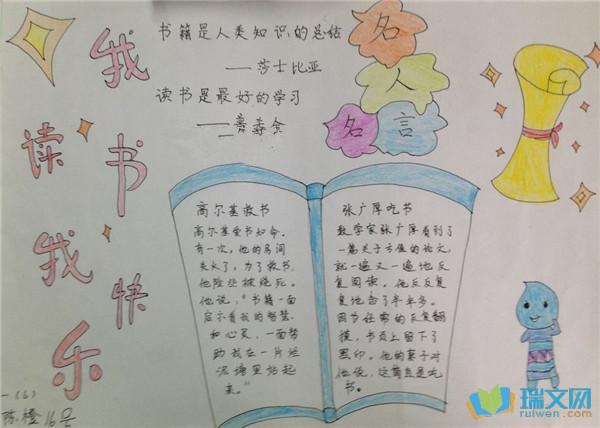 我读书
我快乐
书籍是人类知识的总结
——莎士比亚
读书是最好的学习
名人名言
高尔基救书
高尔基爱书如命。
有一次,他的房间
失火了,为了救书,
他险些被烧死。
他说,"书籍一面
启示着我的智慧
和心灵,一面帮
助我在一片烂
泥塘里站起
来。"
张广厚吃书
数学家张广厚看到了
一篇关于方值的论文,
就一遍又一遍地反
复阅读。他反反复
复地念了半年多。
因为经常的反复翻
摸,书页上留下了
黑印。他的妻子对
他说,这简直是吃
书。
一(6)
陈橙 16号
瑞文网
ruiwen.com